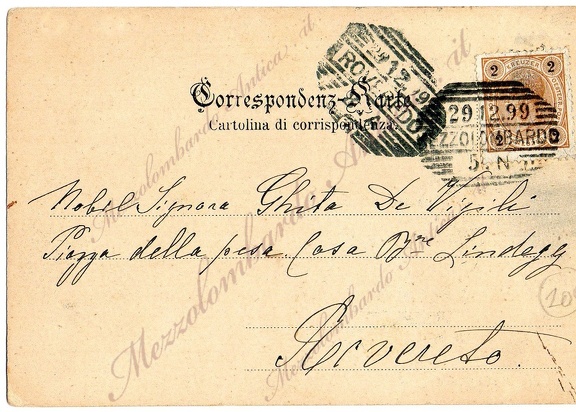 2 KREUZER 2
29 12 99
ROVEREDO
Correspondenz-Karte
Cartolina di corrispondenza.
29 12.99
MEZZOLOMBARDO
5. N
Nobil Signora Ghita De Vigili
Piazza della pesa. Casa Bne Lindegg
Rovereto.
10
Mezzolombardo Antica .it
Mezzolombardo Antica .it
Mezzolombardo Antica .it